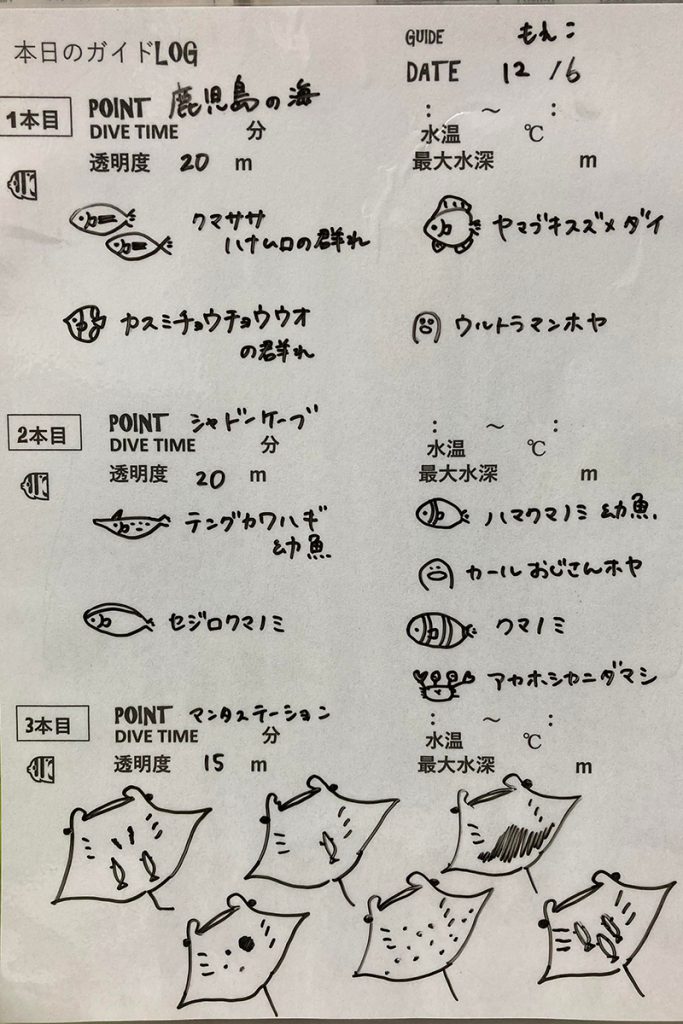 本日のガイドLOG
GUIDE もんこ
DATE 12/6
1本目
POINT 鹿児島の海
DIVE TIME 分
: ～ :
水温 ℃
透明度 20 m
最大水深 m
クマササ
ハナムロの群れ
ヤマブキスズメダイ
カスミチョウチョウウオ
の群れ
ウルトラマンホヤ
2本目
POINT シャドーケーブ
DIVE TIME 分
: ～ :
水温 ℃
透明度 20 m
最大水深 m
テングカワハギ
幼魚
ハマクマノミ 幼魚.
カールおじさんホヤ
セジロクマノミ
クマノミ
アカホシカニダマシ
3本目
POINT マンタステーション
DIVE TIME 分
: ～ :
水温 ℃
透明度 15 m
最大水深 m